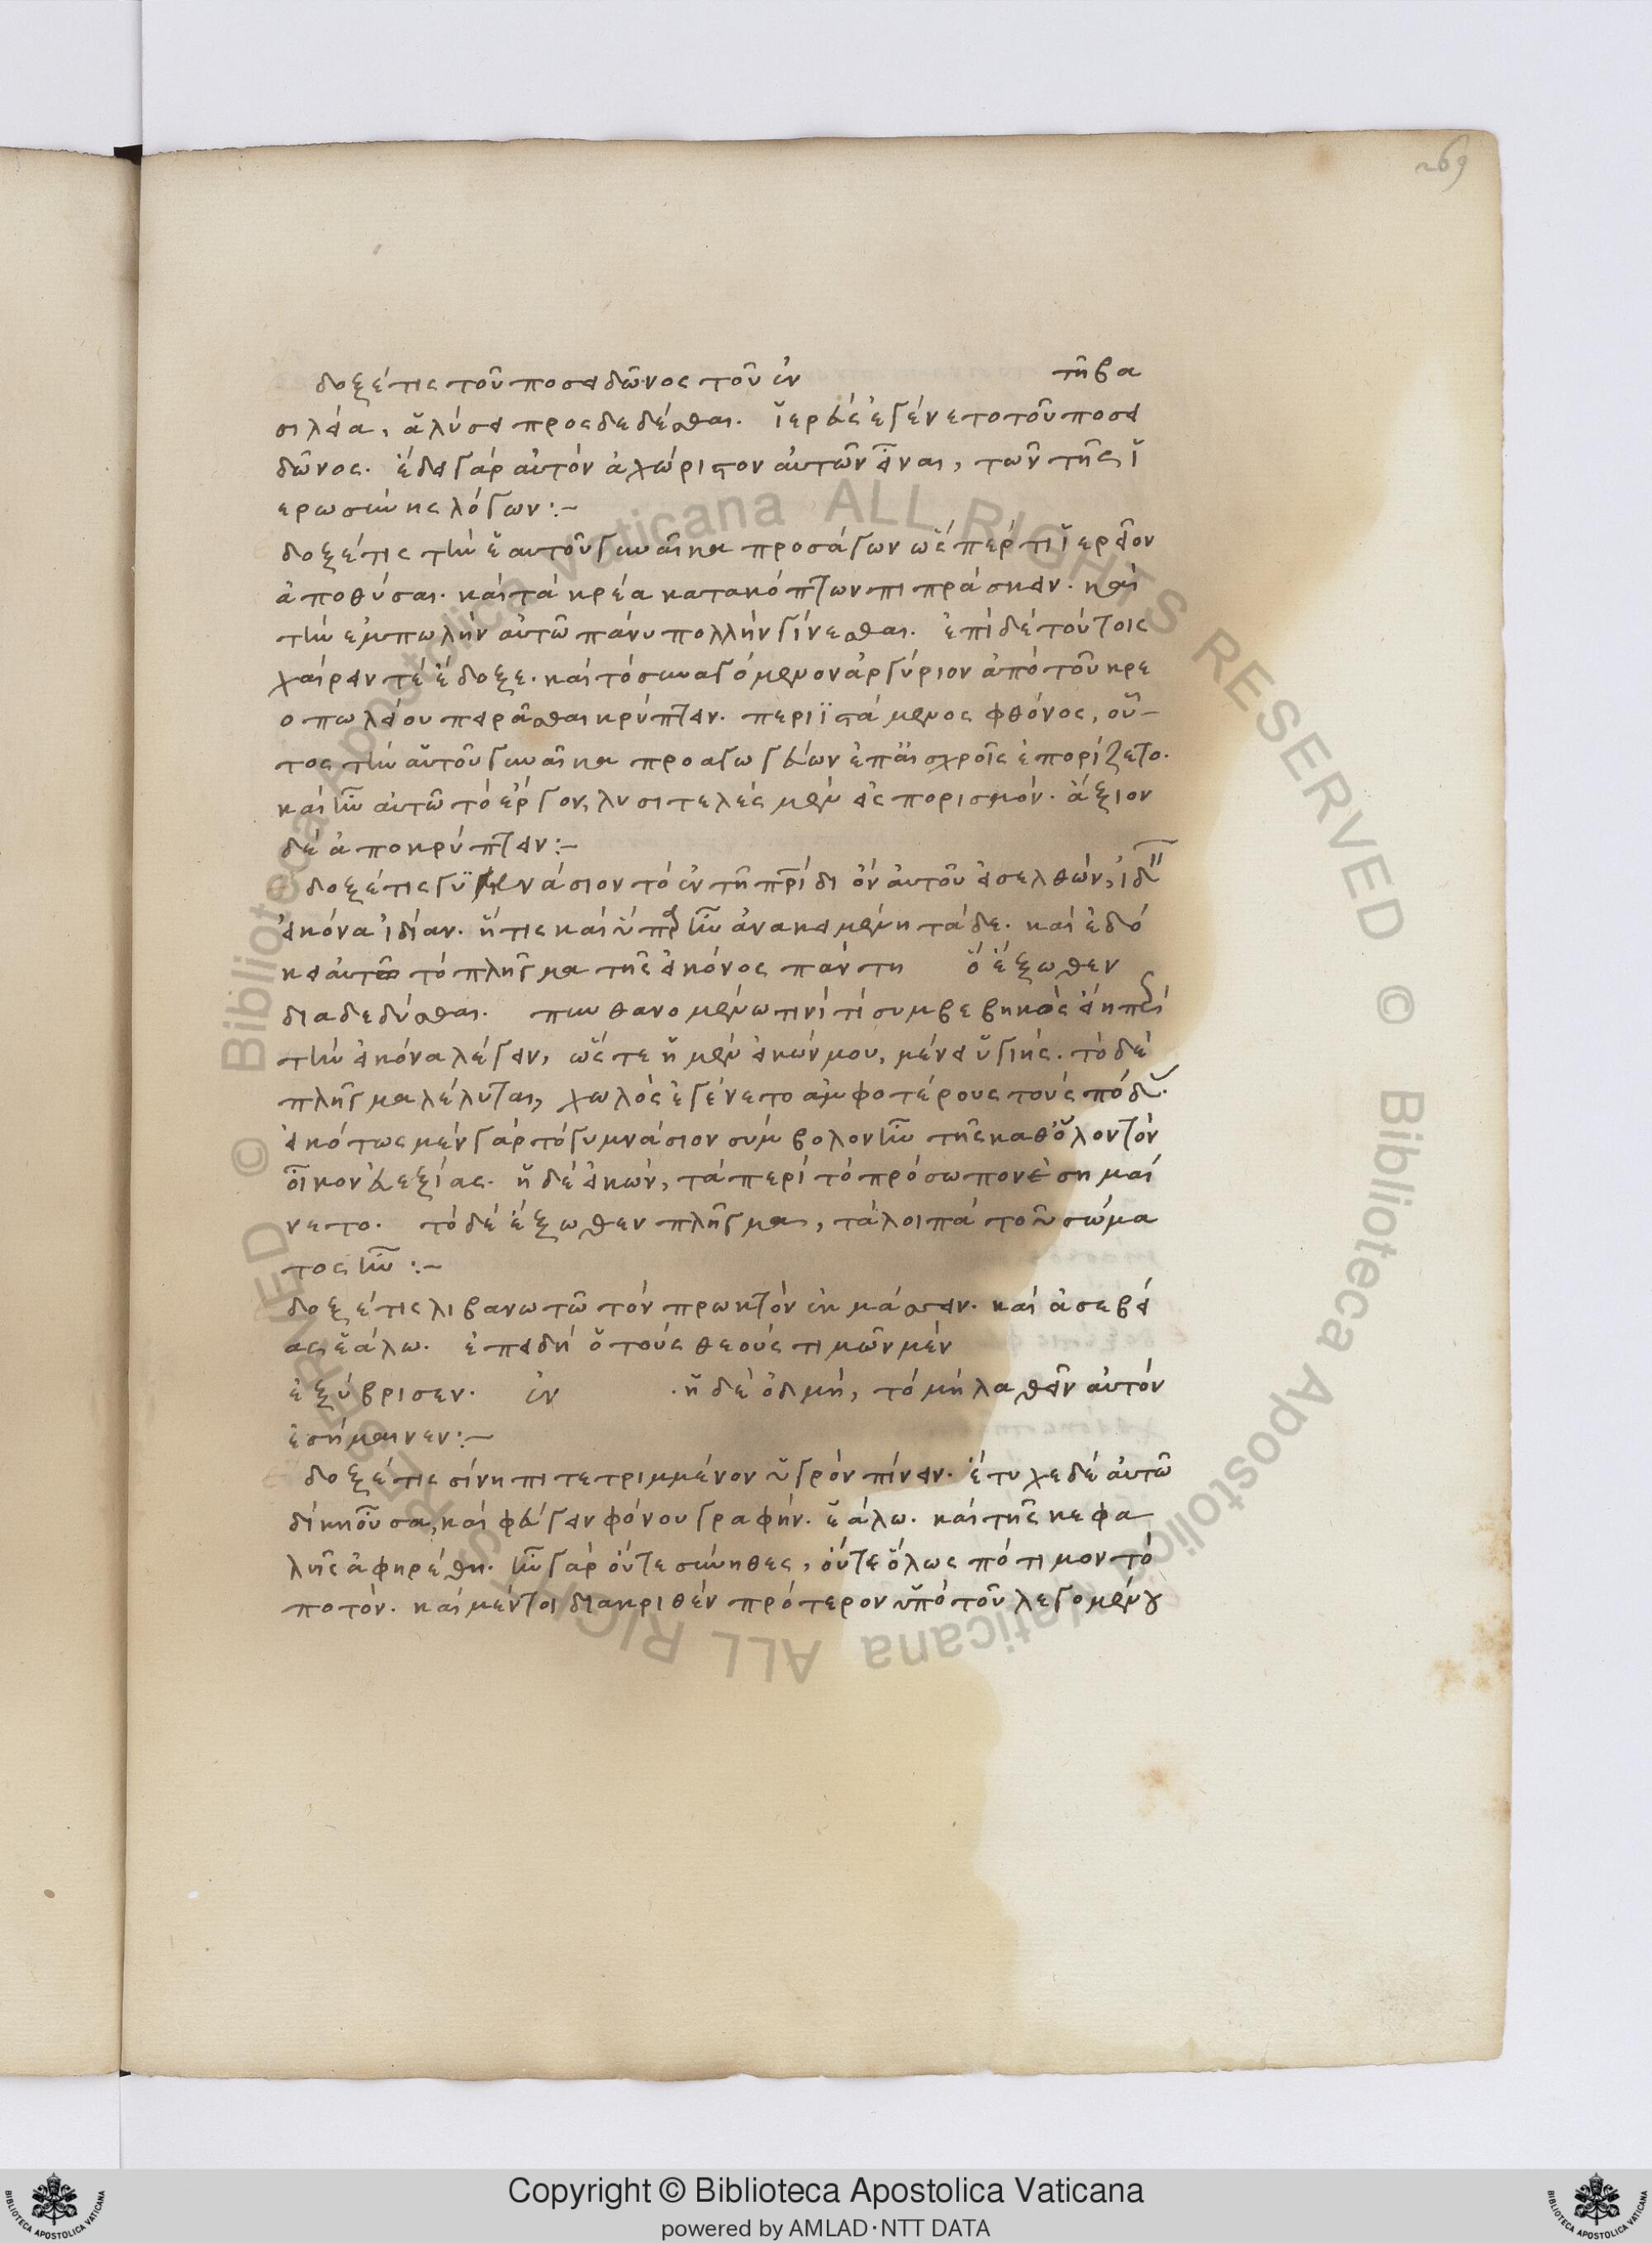 269
δοξέ τις τοῦ ποσειδῶνος τοῦ ἐν τῆ βα
σιλεία, ἁλύσει προσδεδέσθαι. ἱερεὺς ἐγένετο τοῦ ποσει
δῶνος. ἔδει γὰρ αὐτὸν ἀχώριστον αὐτῶν εἶναι, τῶν τῆς ἱ
ερωσύνης λόγων:~
δοξέ τις τὴν ἑαυτοῦ γυναῖκα προσάγων ὥσπέρ τι ἱερεῖον
ἀποθύσαι. καὶ τὰ κρέα κατακόπτων πιπράσκειν. καὶ
τὴν εμπωλὴν αὐτῶ πάνυ πολλὴν γίνεσθαι. ἐπὶ δὲ τούτοις
χαίρειν τὲ ἔδοξε. καὶ τὸ συναγόμενον ἀργύριον ἀπὸ τοῦ κρε
οπωλείου πειρᾶσθαι κρύπτειν. περιϊστάμενος φθόνος, οὗ
τος τὴν αὑτοῦ γυναῖκα προαγωγεύων ἐπ' αἰσχροῖς ἐπορίζετο.
καὶ ἦν αὐτῶ τὸ ἔργον, λυσιτελὲς μὲν εἰς πορισμόν. ἄξιον
δὲ ἀποκρύπτειν:~
δοξέ τις γυμνάσιον τὸ ἐν τῆ πρίδι ὂν αὐτοῦ εἰσελθών, ἰδεῖν
εἰκόνα ἰδίαν. ἥτις καὶ ὕπαρ ἦν ἀνακειμένη τάδε. καὶ ἐδό
κει αὐτῶ τὸ πλῆγμα τῆς εἰκόνος πάντη ὃ ἔξωθεν
διαδεδύσθαι. πυνθανομένω τινὶ τί συμβεβηκὸς εἴη περὶ
τὴν εἰκόνα λέγειν, ὥστε ἡ μὲν εἰκών μου, μένει ὑγιής. τὸ δὲ
πλῆγμα λέλυται, χωλὸς ἐγένετο ἀμφοτέρους τοὺς πόδας.
εἰκότως μὲν γὰρ τὸ γυμνάσιον σύμβολον ἦν τῆς καθόλον τὸν
οἶκον εὐεξίας. ἡ δὲ εἰκών, τὰ περὶ τὸ πρόσωπον ἐσημαί
νετο. τὸ δὲ ἔξωθεν πλῆγμα, τὰ λοιπὰ τοῦ σώμα
τος ἦν:~
δοξέ τις λιβανωτῶ τὸν πρωκτὸν ἐκμάσσειν. καὶ ἀσεβεί
ας ἑάλω. ἐπειδὴ ὃ τοὺς θεοὺς τιμῶν μὲν
ἐξύβρισεν. ἐν . ἡ δὲ ὀδμή, τὸ μὴ λαθεῖν αὐτὸν
ἐσήμαινεν:~
δοξέ τις σίνηπι τετριμμένον ὑγρὸν πίνειν. ἔτυχε δὲ αὐτῶ
δίκη οὖσα, καὶ φεύγειν φόνου γραφήν. ἑάλω. καὶ τῆς κεφα
λῆς ἀφηρέθη. ἦν γὰρ οὔτε σύνηθες, οὔτε ὅλως πότιμον τὸ
ποτόν. καὶ μέντοι διακριθὲν πρότερον ὑπὸ τοῦ λεγομένου
Copyright © Biblioteca Apostolica Vaticana
powered by AMLAD·NTT DATA
BIBLIOTECA APOSTOLICA VATICANA
BIBLIOTECA APOSTOLICA VATICANA
© Biblioteca Apostolica Vaticana ALL RIGHTS RESERVED © Biblioteca Apostolica Vaticana ALL RIGHTS RESERVED